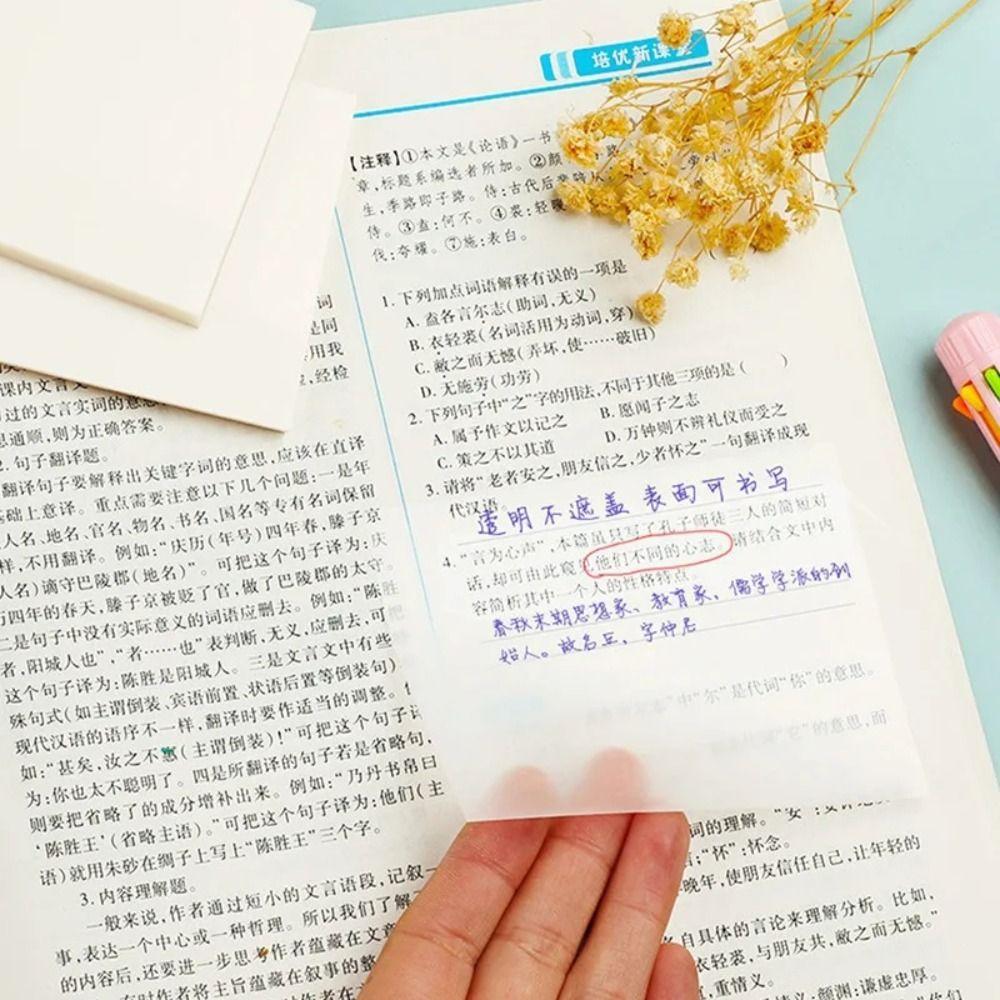 培优新课堂
【注释】①本文是《论语》一书
章,标题系编选者所加。②颜
生,季路即子路。侍:古代后辈陪从
侍。③盍:何不。④裘:轻暖
伐:夸耀。⑦施:表白。
1. 下列加点词语解释有误的一项是
A. 盍各言尔志(助词,无义)
B. 衣轻裘(名词活用为动词,穿)
C. 敝之而无憾(弄坏,使……破旧)
D. 无施劳(功劳)
2. 下列句子中“之”字的用法,不同于其他三项的是 ( )
A. 属予作文以记之 B. 愿闻子之志
C. 策之不以其道 D. 万钟则不辨礼仪而受之
3. 请将“老者安之,朋友信之,少者怀之”一句翻译成现
代汉语。
透明不遮盖 表面可书写
4. “言为心声”,本篇虽只写了孔子师徒三人的简短对
话,却可由此窥见他们不同的心志。请结合文中内
容简析其中一个人的性格特点。
春秋末期思想家、教育家、儒学学派的创
始人。故名丘,字仲尼
中“尔”是代词“你”的意思。
“它”的意思,而
词的理解。“安”:
;“怀”:怀念。
晚年,使朋友信任自己,让年轻的
自具体的言论来理解分析。比如,
衣轻裘,与朋友共,敝之而无憾。”
,重情义。
颜渊:谦虚忠厚。
词
是同
用我
课内文言文
,经检
过的文言实词的意思
思通顺,则为正确答案。
2. 句子翻译题。
翻译句子要解释出关键字词的意思,应该在直译
基础上意译。重点需要注意以下几个问题:一是年
人名、地名、官名、物名、书名、国名等专有名词保留
样,不用翻译。例如:“庆历(年号)四年春,滕子京
人名)谪守巴陵郡(地名)”。可把这个句子译为:庆
历四年的春天,滕子京被贬了官,做了巴陵郡的太守。
二是句子中没有实际意义的词语应删去。例如:“陈胜
者,阳城人也”,“者……也”表判断,无义,应删去,可
这个句子译为:陈胜是阳城人。三是文言文中有些
殊句式(如主谓倒装、宾语前置、状语后置等倒装句)
现代汉语的语序不一样,翻译时要作适当的调整。
如:“甚矣,汝之不惠(主谓倒装)!”可把这个句子译
为:你也太不聪明了。四是所翻译的句子若是省略句,
则要把省略了的成分增补出来。例如:“乃丹书帛曰
‘陈胜王’(省略主语)。”可把这个句子译为:他们(主
语)就用朱砂在绸子上写上“陈胜王”三个字。
3. 内容理解题。
一般来说,作者通过短小的文言语段,记叙一
事,表达一个中心或一种哲理。所以我们了解
的内容后,还要进一步思考作者蕴藏在文章
有时作者将主旨蕴藏在叙事的整